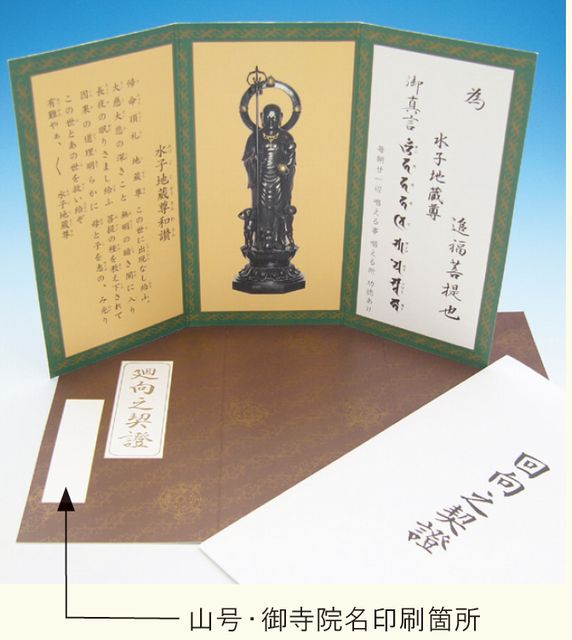 為
水子地蔵尊
追福菩提也
御真言
毎朝廿一返 唱える事 唱える所 功徳あり
水子地蔵尊和讃
帰命頂礼 地蔵尊 この世に出現なし給ふ、
大慈大悲の深きこと 無明の暗き闇に入り
長夜の眠りさまし給ふ 菩提の種を教え下されて
因果の道理明らかに 母と子を恵の、み光り
この世とあの世を救い給ぞ
有難やぁ、〱 水子地蔵尊
廻向之契證
回向之契證
山号・御寺院名印刷箇所